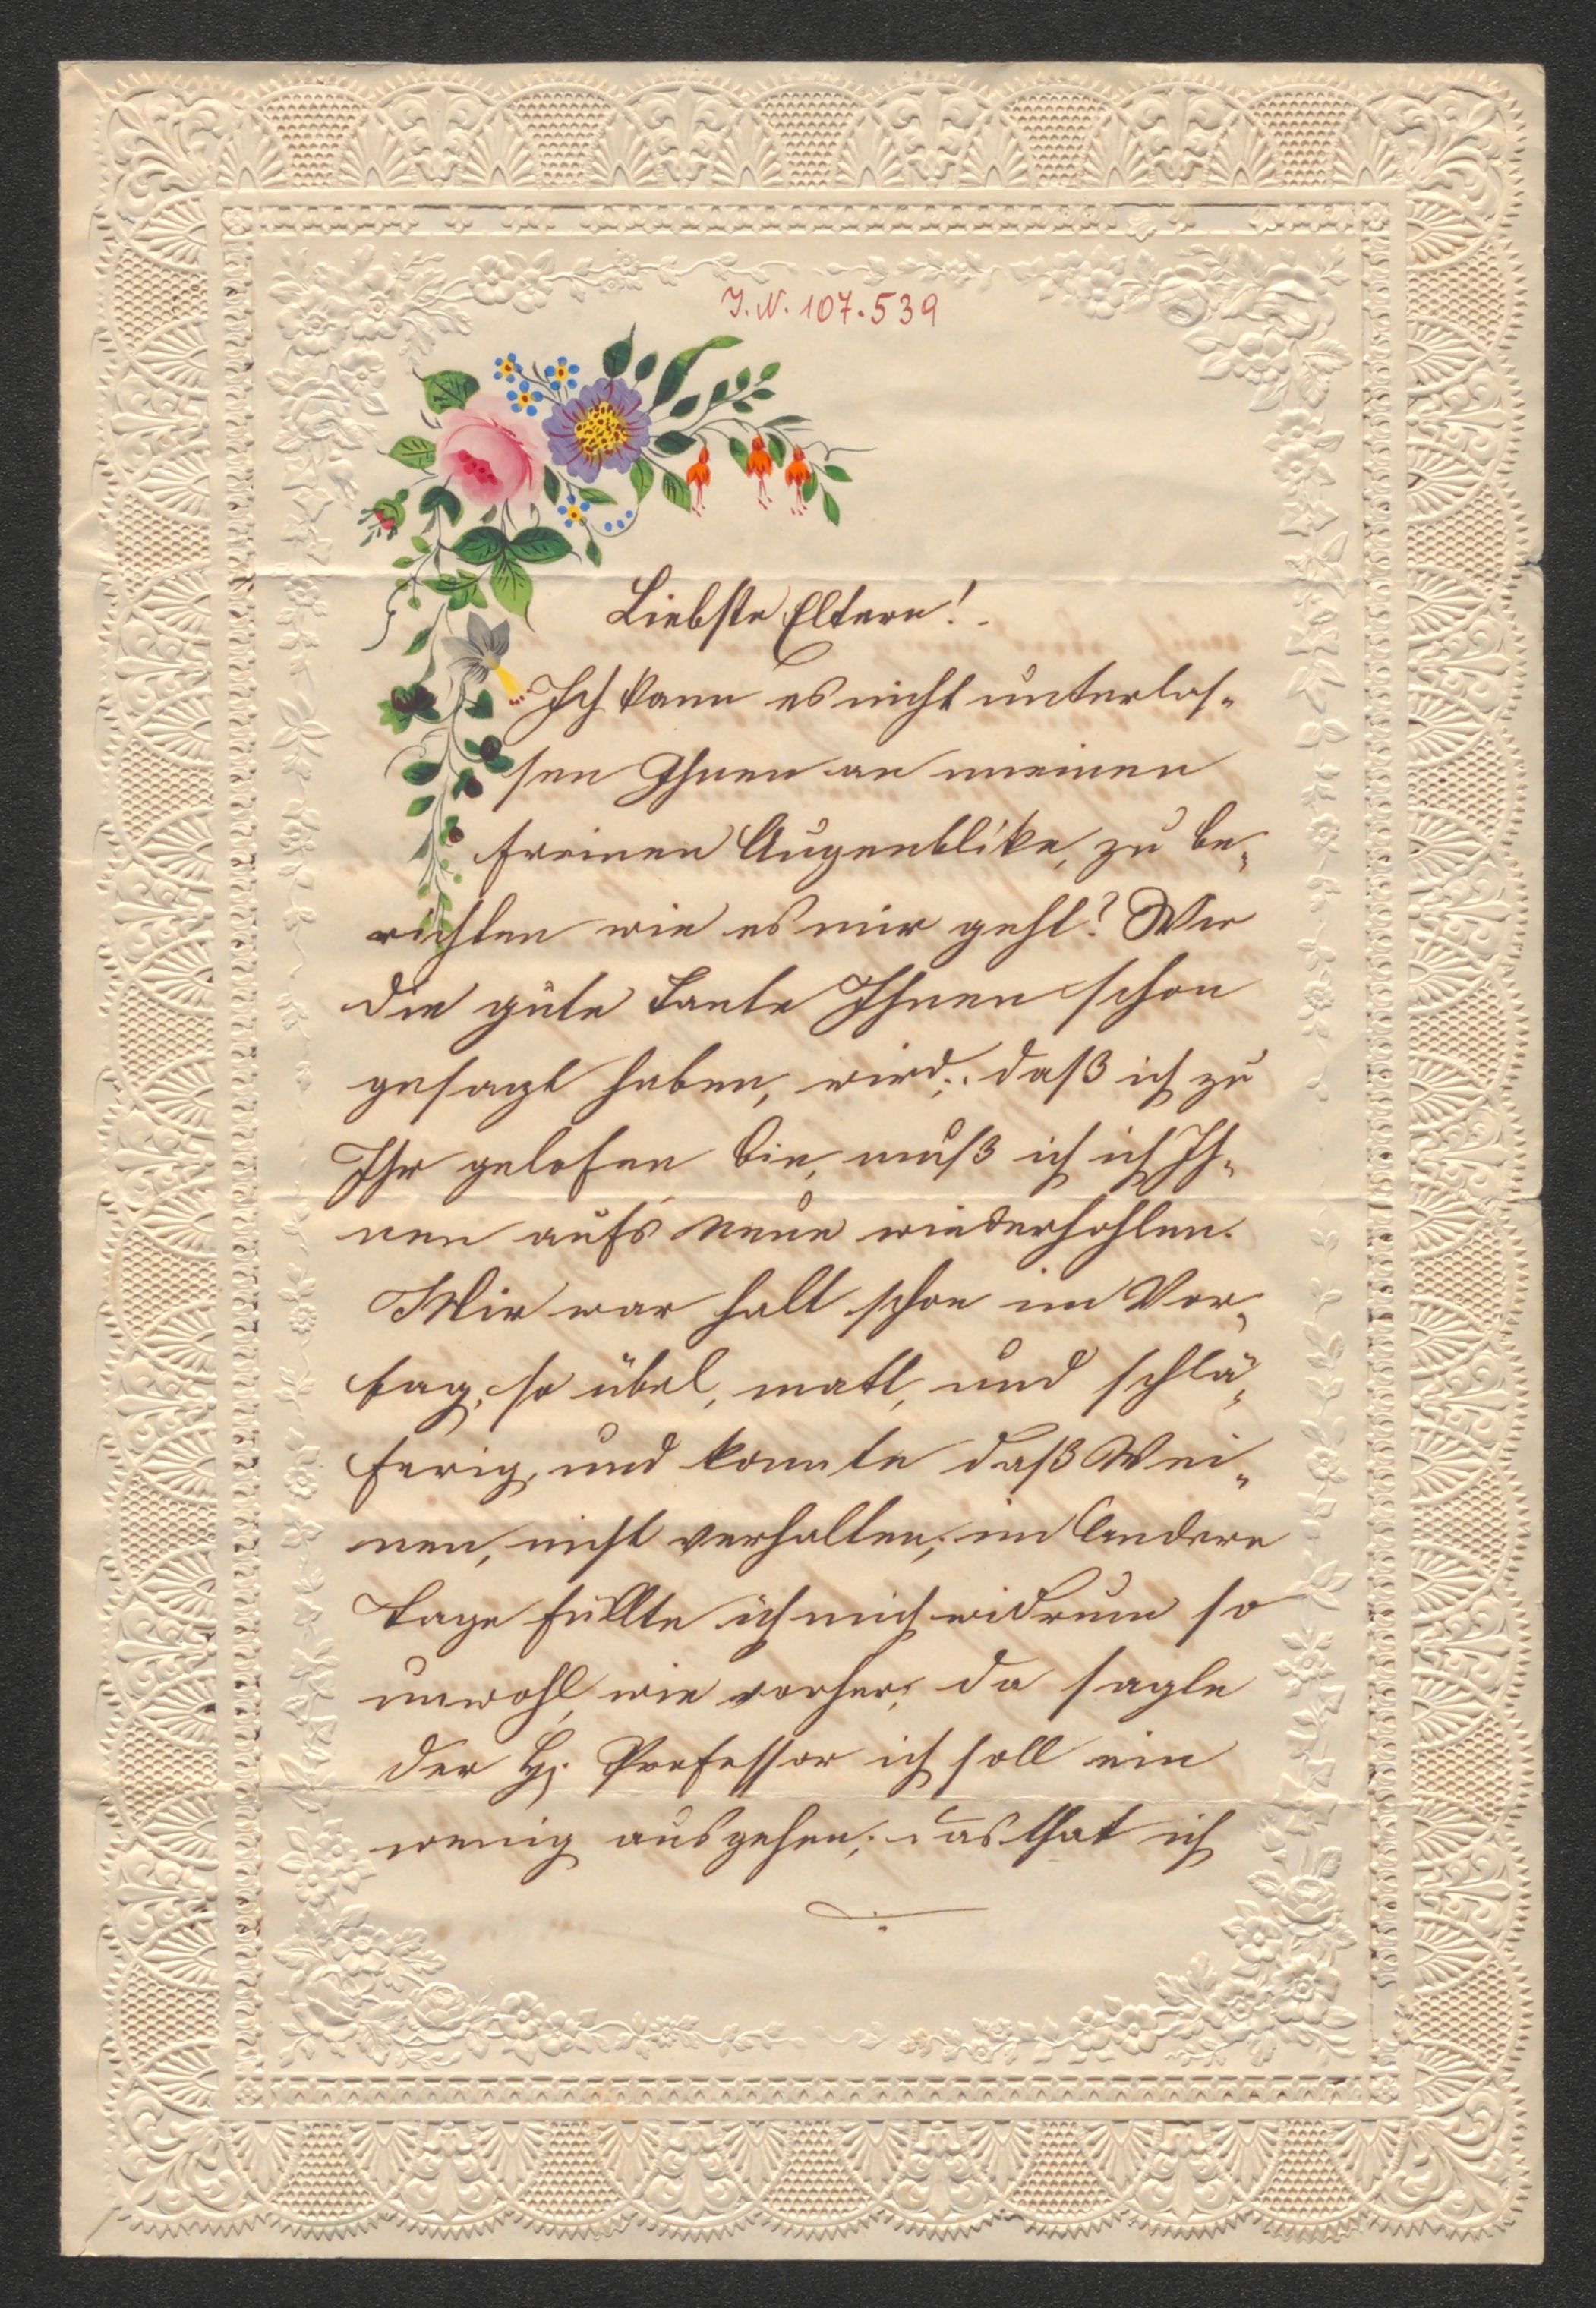 I. N. 107.539
Liebste Eltern!
Ich kann es nicht unterlas-
sen Ihnen an meinen
freien Augenblike, zu be-
richten wie es mir geht? Wie
die gute Tante Ihnen schon
gesagt haben, wird; daß ich zu
Ihr gelofen bin, muß ich ich Ih-
nen aufs Neue wiederhohlen.
Mir war halt schon im Vor-
tag, so übel, matt, und schlä-
ferig, und konnte daß Wei-
nen, nicht verhalten; im Andern
Tage füllte ich mich widrum so
unwohl, wie vorher; da sagte
der H: Professor ich soll ein
wenig ausgehen; das that ich